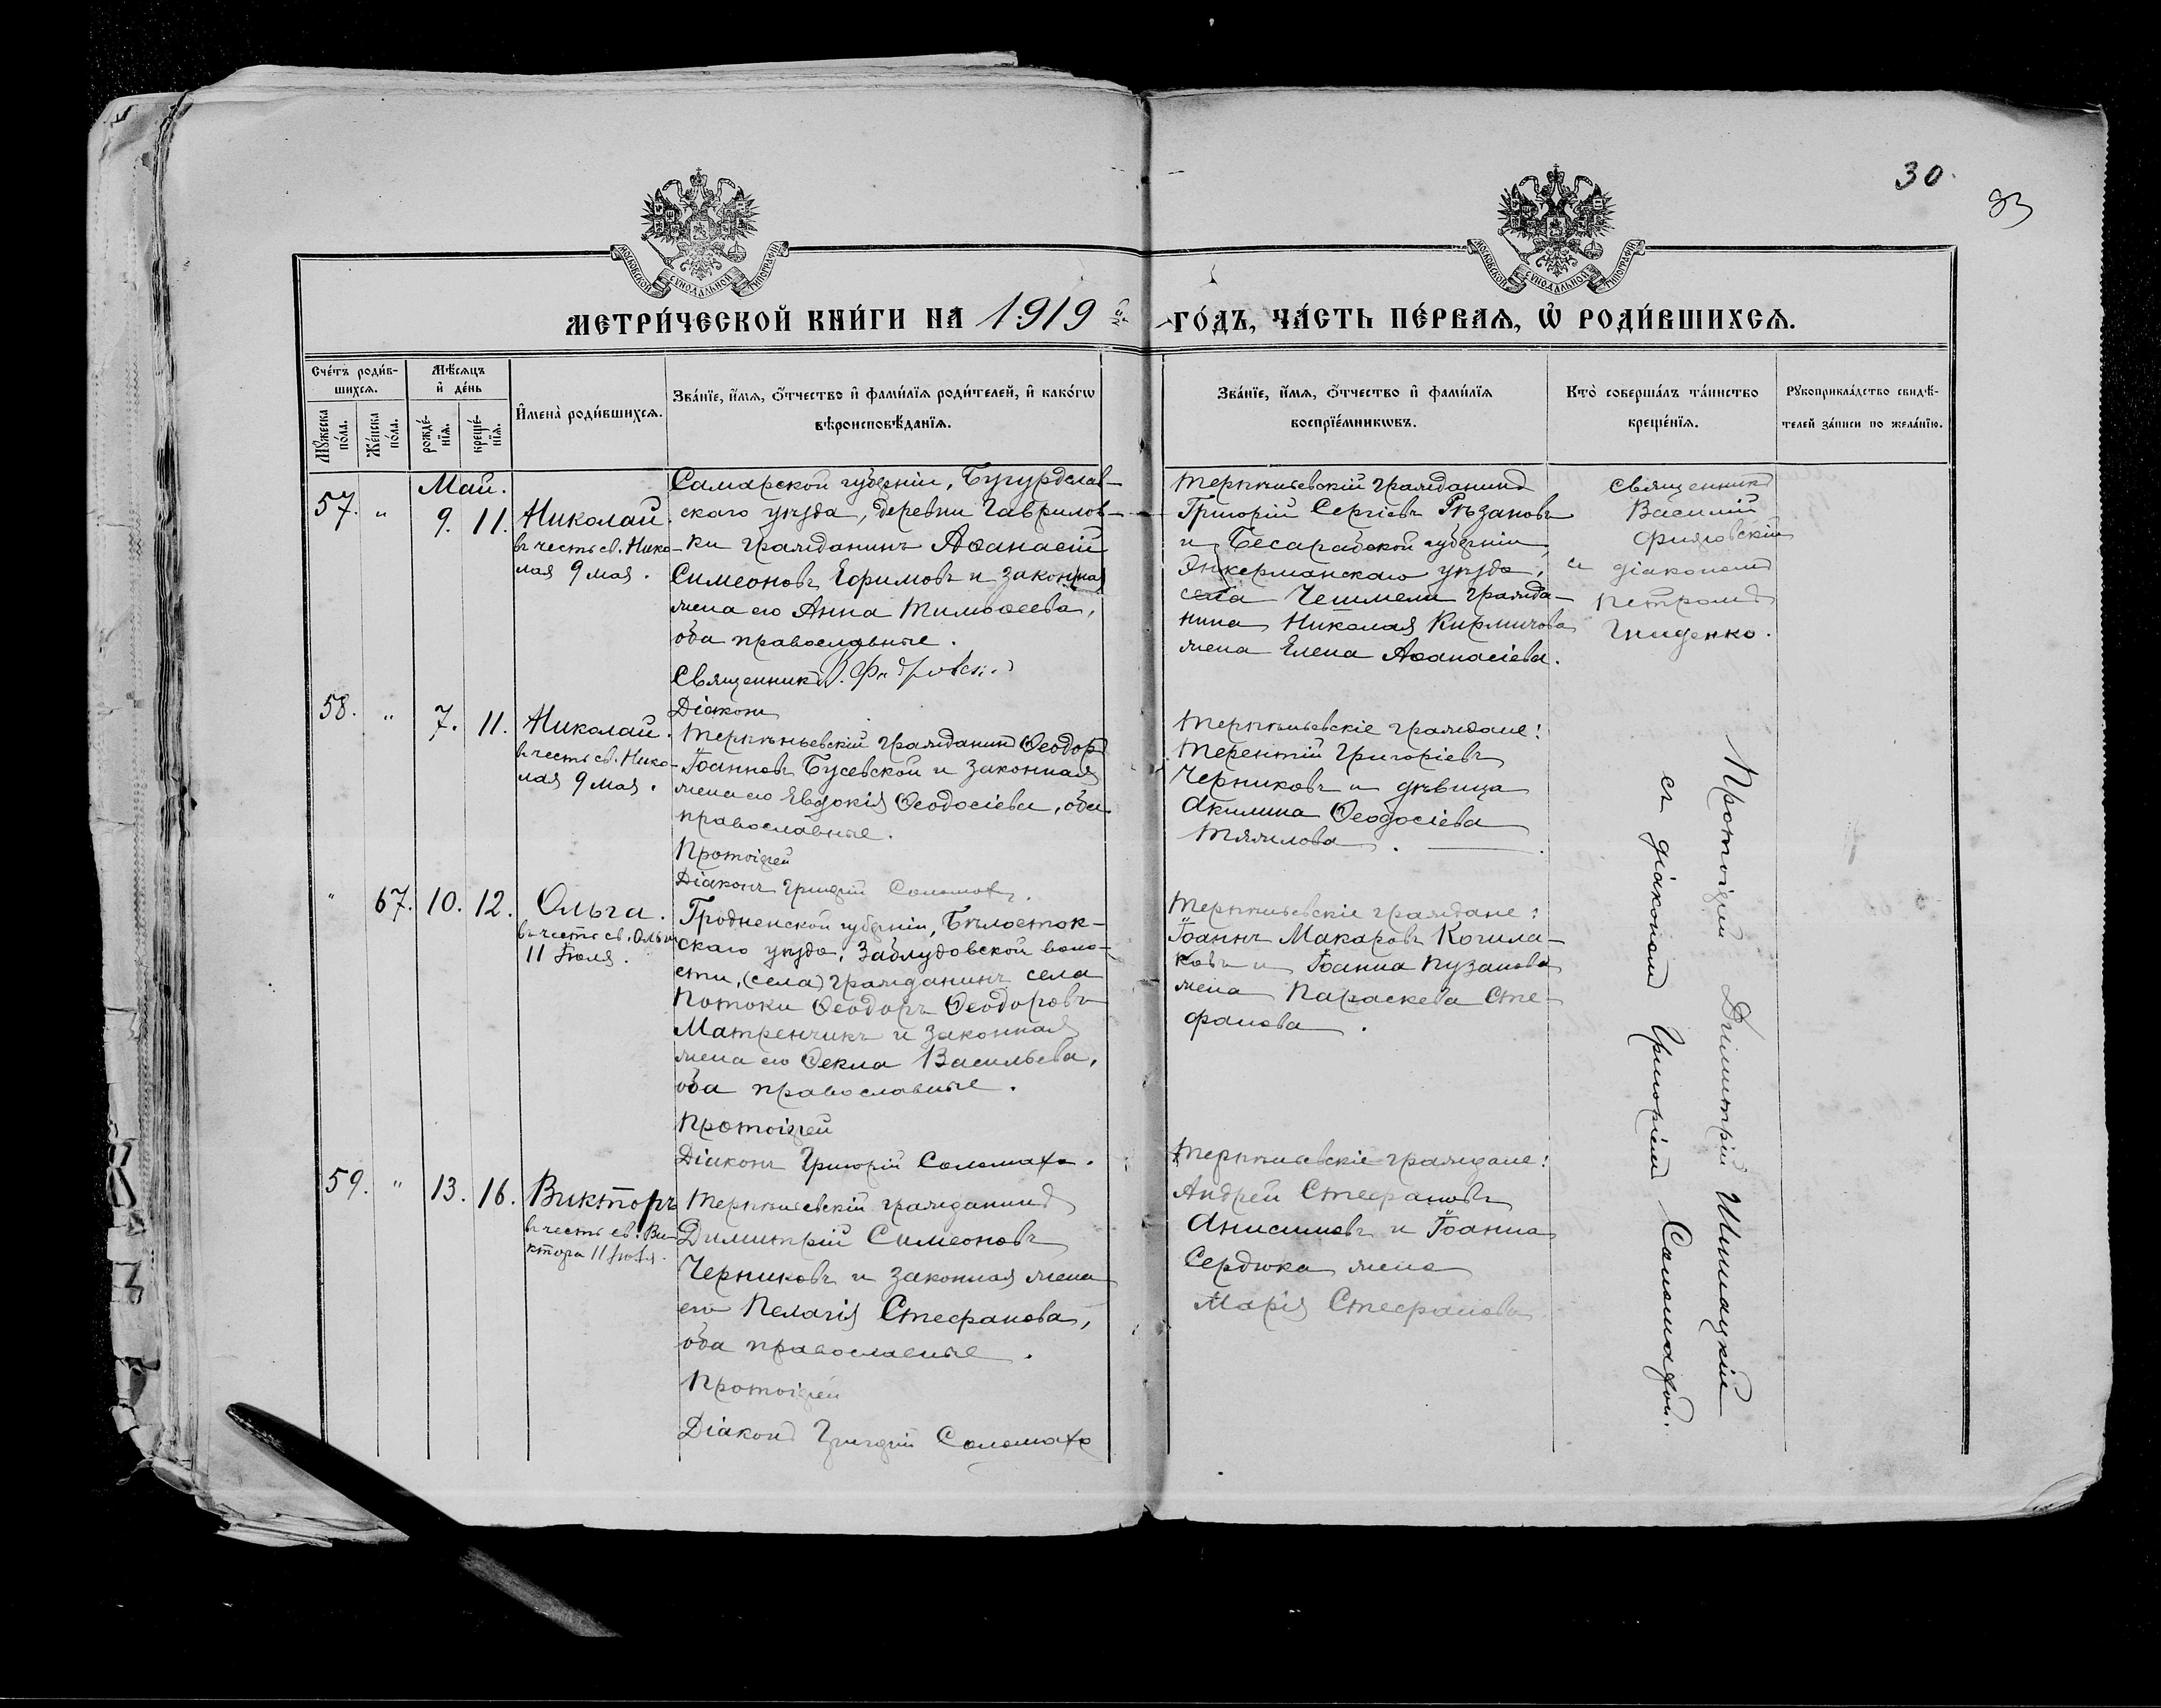 30.
93
МОСКОВСКОЙ СѴНОДАЛЬНОЙ ТИПОГРАФІИ
МОСКОВСКОЙ СѴНОДАЛЬНОЙ ТИПОГРАФІИ
МЕТРИ́ЧЕСКОЙ КНИ́ГИ НА 1919 ГО́ДЪ, ЧА́СТЬ ПЕ́РВАѦ, Ѡ҆ РОДИ́ВШИХСѦ.
Сче́тъ роди́в-
шихсѧ.
Мꙋ́жеска по́ла.
Же́нска по́ла.
Мѣ́сѧцъ
и҆ де́нь
рожде́-
нїѧ.
креще́-
нїѧ.
И҆мена̀ роди́вшихсѧ.
Зва́нїе, и҆́мѧ, ѻ҆́тчество и҆ фами́лїѧ роди́телей, и҆ како́гѡ
вѣроисповѣ́данїѧ.
Зва́нїе, и҆́мѧ, ѻ҆́тчество и҆ фами́лїѧ
воспрїе́мникѡвъ.
Кто̀ соверша́лъ та́инство
креще́нїѧ.
Рꙋкоприкла́дство свидѣ́-
телей за́писи по жела́нїю.
Май.
57. " 9. 11. Николай.
въ честь св. Нико-
лая 9 мая.
Самарской губерніи, Бугурослав-
скаго уѣзда, деревни Гаврилов-
ки гражданинъ Аѳанасій
Симеоновъ Ефимовъ и законная
жена его Анна Тимоѳеева,
оба православные.
Священникъ В.
Діаконъ
Терпѣньевскій гражданинъ
Григорій Сергіевъ Рѣзановъ
и Бесарабской губерніи,
Анкерманскаго уѣзда,
села Чешмели гражда-
нина Николая Кирмичова
жена Елена Аѳанасіева.
Священникъ
Василій
с діакономъ
Петромъ
Гниденко.
58. " 7. 11. Николай.
въ честь св. Нико-
лая 9 мая.
Терпѣньевскій гражданинъ Ѳеодоръ
Іоанновъ Бусевской и законная
жена его Евдокія Ѳеодосіева, оба
православные.
Протоіерей
Діаконъ Григорій Соломаха.
Терпѣньевскіе граждане:
Терентій Григоріевъ
Черниковъ и дѣвица
Акилина Ѳеодосіева
Тяжлова.
" 67. 10. 12. Ольга.
въ честь св. Ольги
11 Іюля.
Гродненской губерніи, Бѣлосток-
скаго уѣзда, Заблудовской воло-
сти, (села) гражданинъ села
Потоки Ѳеодоръ Ѳеодоровъ
Матренчикъ и законная
жена его Ѳекла Васильева,
оба православные.
Протоіерей
Діаконъ Григорій Соломаха.
Терпѣньевскіе граждане:
Іоаннъ Макаровъ Когила-
ковъ и Іоанна Пузанова
жена Параскева Сте-
фанова.
59. " 13. 16. Викторъ
въ честь св. Ви-
ктора 11
Терпѣньевскій гражданинъ
Димитрій Симеоновъ
Черниковъ и законная жена
его Пелагія Стефанова,
оба православные.
Протоіерей
Діаконъ Григорій Соломаха
Терпѣньевскіе граждане:
Андрей Стефановъ
Анисимовъ и Іоанна
Сердюка жена
Марія Стефанова
Протоіерей Димитрій Шишацкій
съ діакономъ Григоріемъ Соломахой.